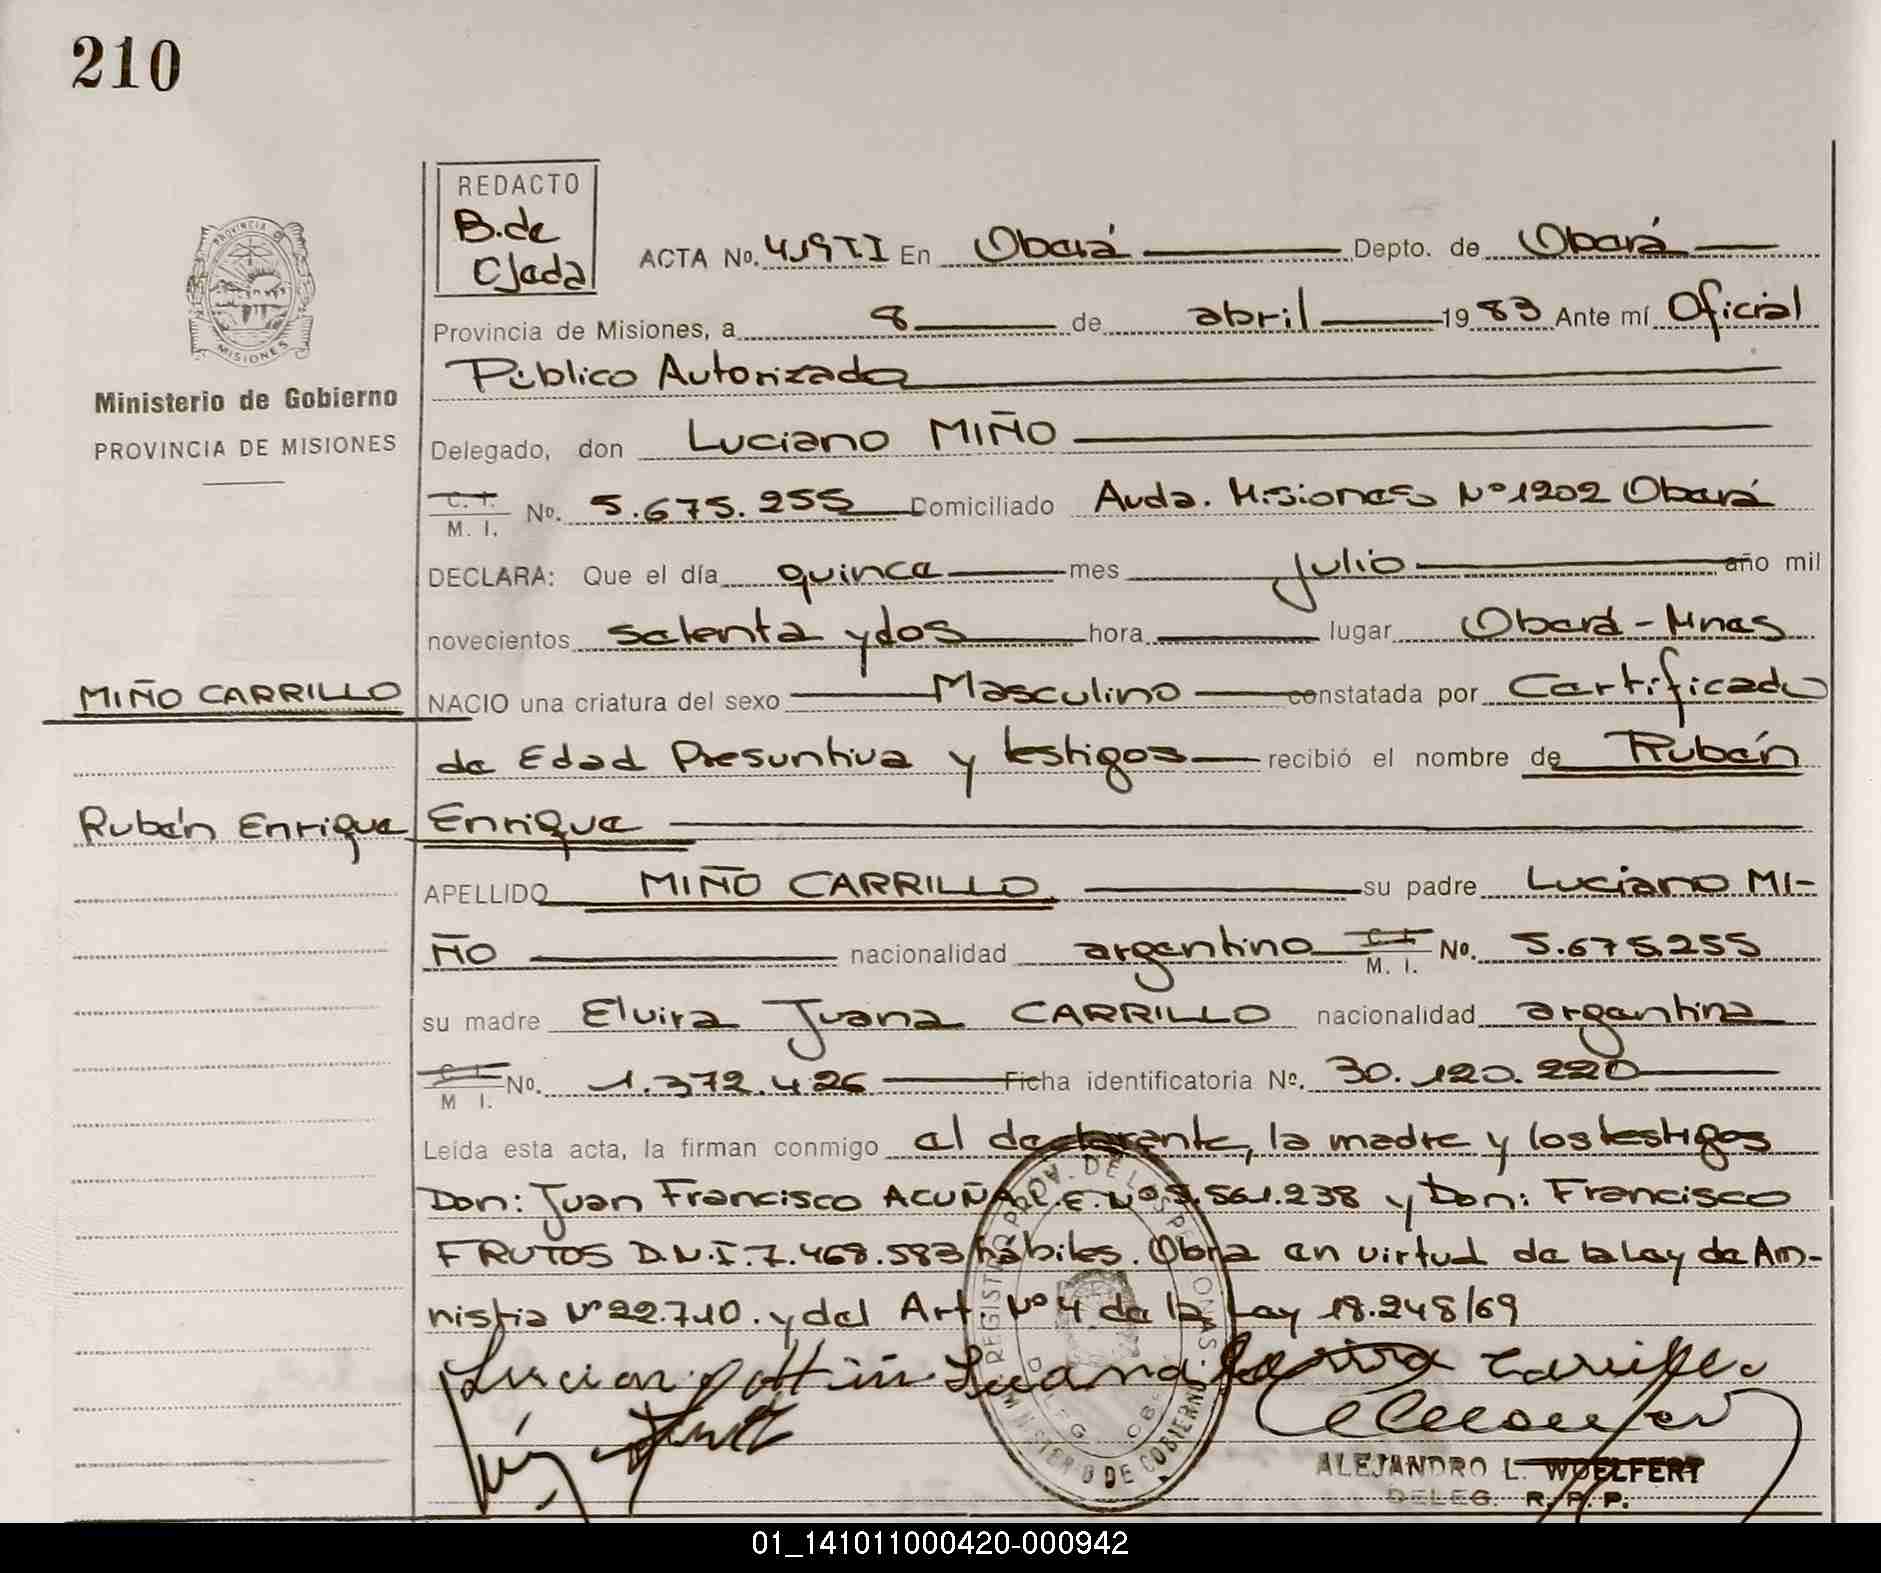 210
REDACTO
B. de
Cjada
ACTA No. 419 II En Oberá Depto. de Oberá
Provincia de Misiones, a 8 de abril 1983 Ante mí Oficial
Público Autorizado
PROVINCIA DE
MISIONES
Ministerio de Gobierno
PROVINCIA DE MISIONES
Delegado, don Luciano MIÑO
C. I.
M. I. No. 5.675.255 Domiciliado Avda. Misiones Nº 1202 Oberá
DECLARA: Que el día quince mes julio año mil
novecientos setenta y dos hora lugar Oberá - Mnes
MIÑO CARRILLO
NACIO una criatura del sexo Masculino constatada por Certificado
de Edad Presuntiva y testigos recibió el nombre de Rubén
Rubén Enrique
Enrique
APELLIDO MIÑO CARRILLO su padre Luciano MI-
ÑO nacionalidad argentino C. I. M. I. No. 5.675.255
su madre Elvira Juana CARRILLO nacionalidad argentina
C. I. M. I. No. 1.372.426 Ficha identificatoria No. 30.120.220
Leída esta acta, la firman conmigo el declarante, la madre y los testigos
Don: Juan Francisco ACUÑA L.E. Nº .561.238 y Don: Francisco
FRUTOS D.N.I. 7.468.583 hábiles. Obra en virtud de la Ley de Am-
nistia Nº 22.710. y del Art. Nº 4 de la Ley 18.248/69
REGISTRO PROV. DE LAS PERSONAS
MINISTERIO DE GOBIERNO
ALEJANDRO L. WOELFERT
DELEG. R. P. P.
01_141011000420-000942